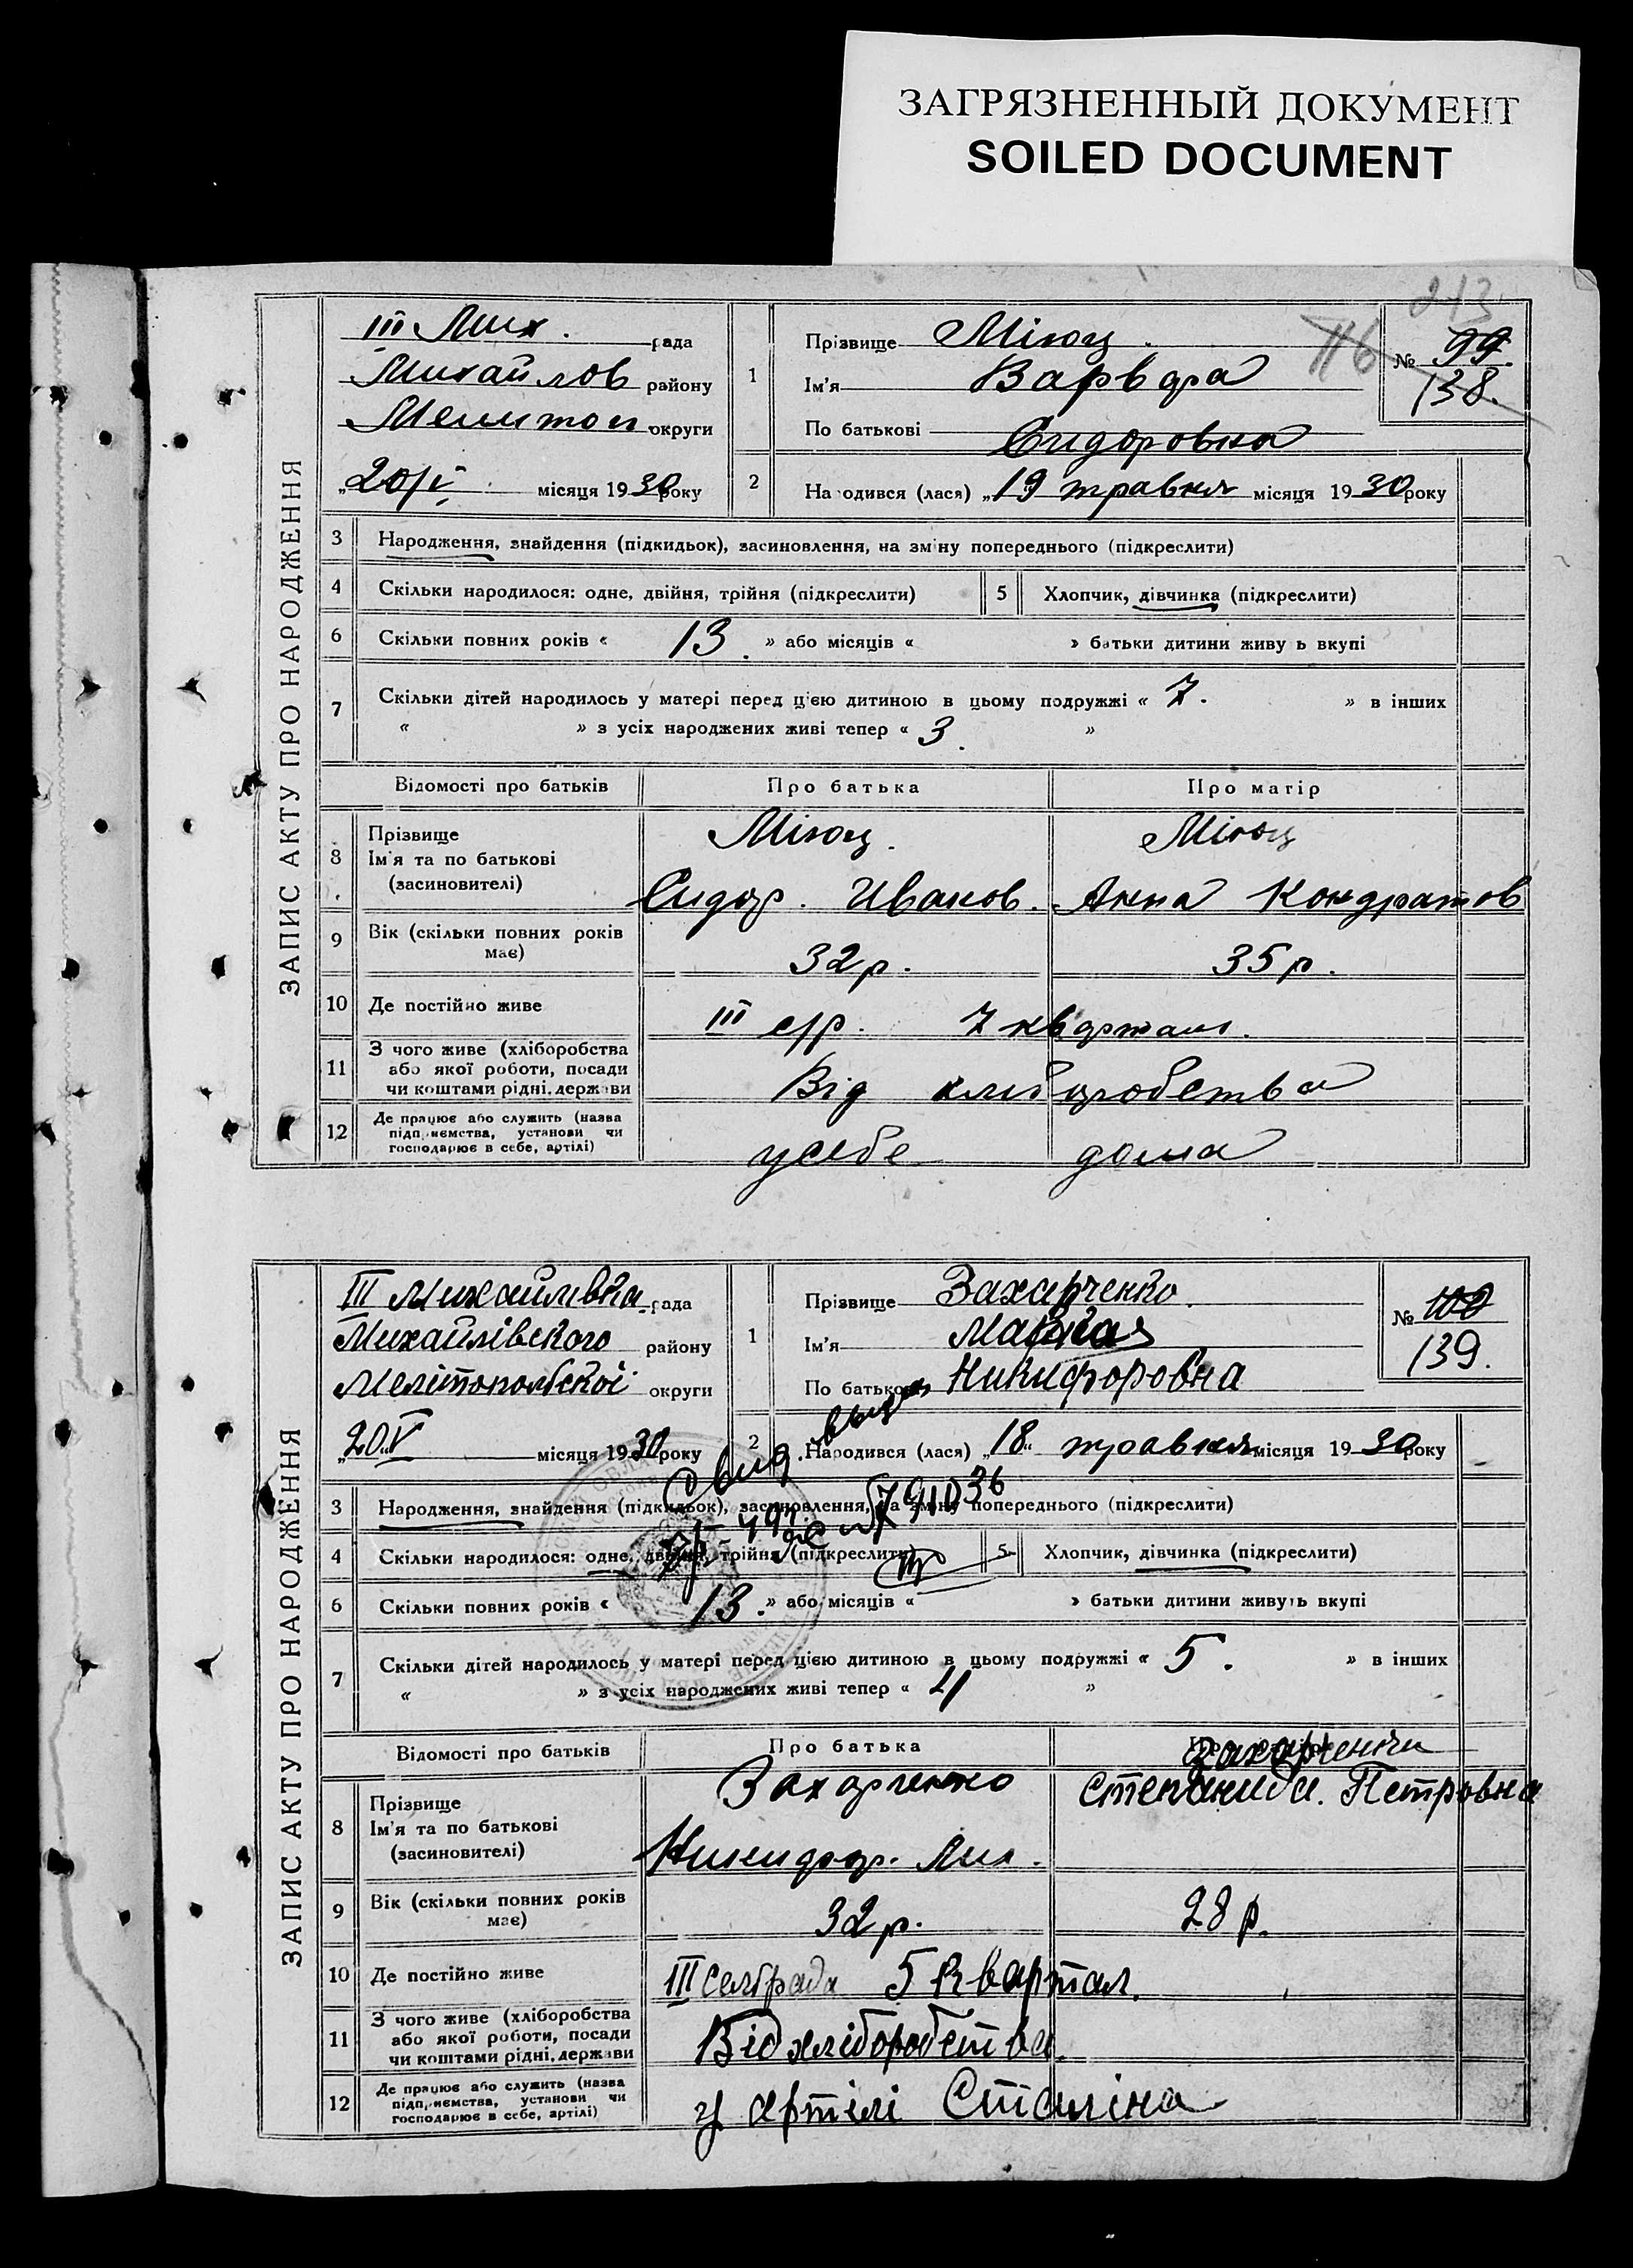 ЗАГРЯЗНЕННЫЙ ДОКУМЕНТ
SOILED DOCUMENT
213
116
ЗАПИС АКТУ ПРО НАРОДЖЕННЯ
III Мих. рада
Михайлов району
Мелитоп округи
„20/V місяця 1930 року
1
Прізвище Міюц.
Ім'я Варвара
По батькові Сидоровна
№ 99.
138.
2 На одився (лася) „19 травня місяця 1930 року
3 Народження, знайдення (підкидьок), засиновлення, на зміну попереднього (підкреслити)
4 Скільки народилося: одне, двійня, трійня (підкреслити)
5 Хлопчик, дівчинка (підкреслити)
6 Скільки повних років « 13. » або місяців « » батьки дитини живу ь вкупі
7 Скільки дітей народилось у матері перед цією дитиною в цьому подружжі « 7. » в інших
« » з усіх народжених живі тепер « 3. »
Відомості про батьків Про батька Про матір
8 Прізвище
Ім'я та по батькові
(засиновителі)
Міюц. Міюц
Сидор. Иванов. Анна Кондратов
9 Вік (скільки повних років
має)
32 р. 35 р.
10 Де постійно живе III с/р. 7 квартал.
11 З чого живе (хліборобства
або якої роботи, посади
чи коштами рідні, держави
Від хліборобства
12 Де працює або служить (назва
підприємства, установи чи
господарює в себе, артілі)
усебе дома
ЗАПИС АКТУ ПРО НАРОДЖЕННЯ
III Михайлівка рада
Михайлівского району
Мелітопольської округи
„20„V місяця 1930 року
1
Прізвище Захарченко.
Ім'я
По батькові Никифоровна
№ 100
139.
2 Народився (лася) „18„ травня місяця 1930 року
Свид.
3 Народження, знайдення (підкидьок), засиновлення, на зміну попереднього (підкреслити)
4 Скільки народилося: одне, двійня, трійня (підкреслити)
5 Хлопчик, дівчинка (підкреслити)
6 Скільки повних років « 13. » або місяців « » батьки дитини живуть вкупі
7 Скільки дітей народилось у матері перед цією дитиною в цьому подружжі « 5. » в інших
« » з усіх народжених живі тепер « 4 »
Відомості про батьків Про батька
8 Прізвище
Ім'я та по батькові
(засиновителі)
Захарченко
Никифор. Мих.
Степанида. Петровна
9 Вік (скільки повних років
має)
32 р. 28 р.
10 Де постійно живе III сельрада 5 квартал.
11 З чого живе (хліборобства
або якої роботи, посади
чи коштами рідні, держави
Від хліборобства.
12 Де працює або служить (назва
підприємства, установи чи
господарює в себе, артілі)
у артілі Сталіна